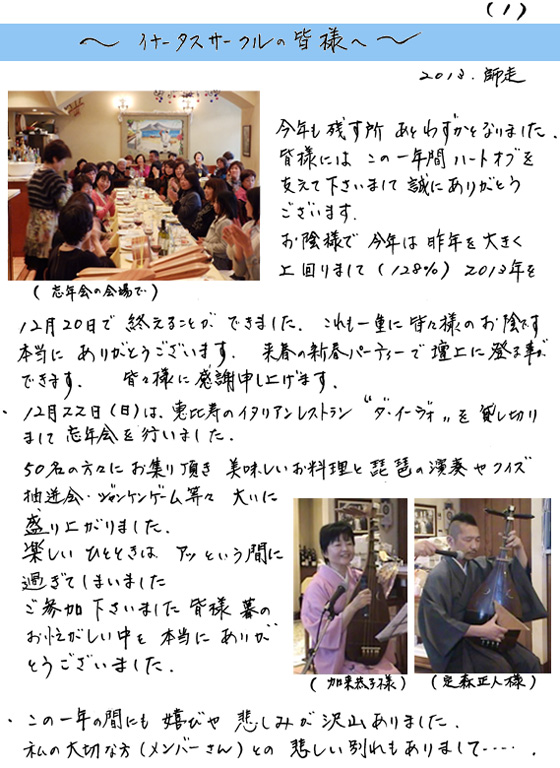 (1)
〜 イナータスサークルの皆様へ 〜
2013. 師走
今年も残す所 あとわずかとなりました.
皆様には この一年間 ハートオブを
支えて下さいまして 誠にありがとう
ございます.
お陰様で 今年は 昨年を大きく
上回りまして (128%) 2013年を
(忘年会の会場で)
12月20日で 終えることが できました. これも一重に皆々様のお陰です
本当に ありがとうございます. 来春の新春パーティーで壇上に登る事が
できます. 皆々様に感謝申し上げます.
・ 12月22日(日)は、恵比寿のイタリアンレストラン "ダ・イーヴォ" を 貸し切り
まして 忘年会を行いました.
50名の方々に お集り頂き 美味しいお料理と 琵琶の演奏や クイズ
抽選会・ジャンケンゲーム等々 大いに
盛り上がりました.
楽しい ひとときは アッという間に
過ぎてしまいました
ご参加 下さいました 皆様 暮の
お忙がしい中を 本当に ありが
とうございました.
(加来恭子様)
(定森正人様)
・ この一年の間にも 嬉びや 悲しみが 沢山ありました.
私の大切な方(メンバーさん)との 悲しい別れもありまして‥‥‥.